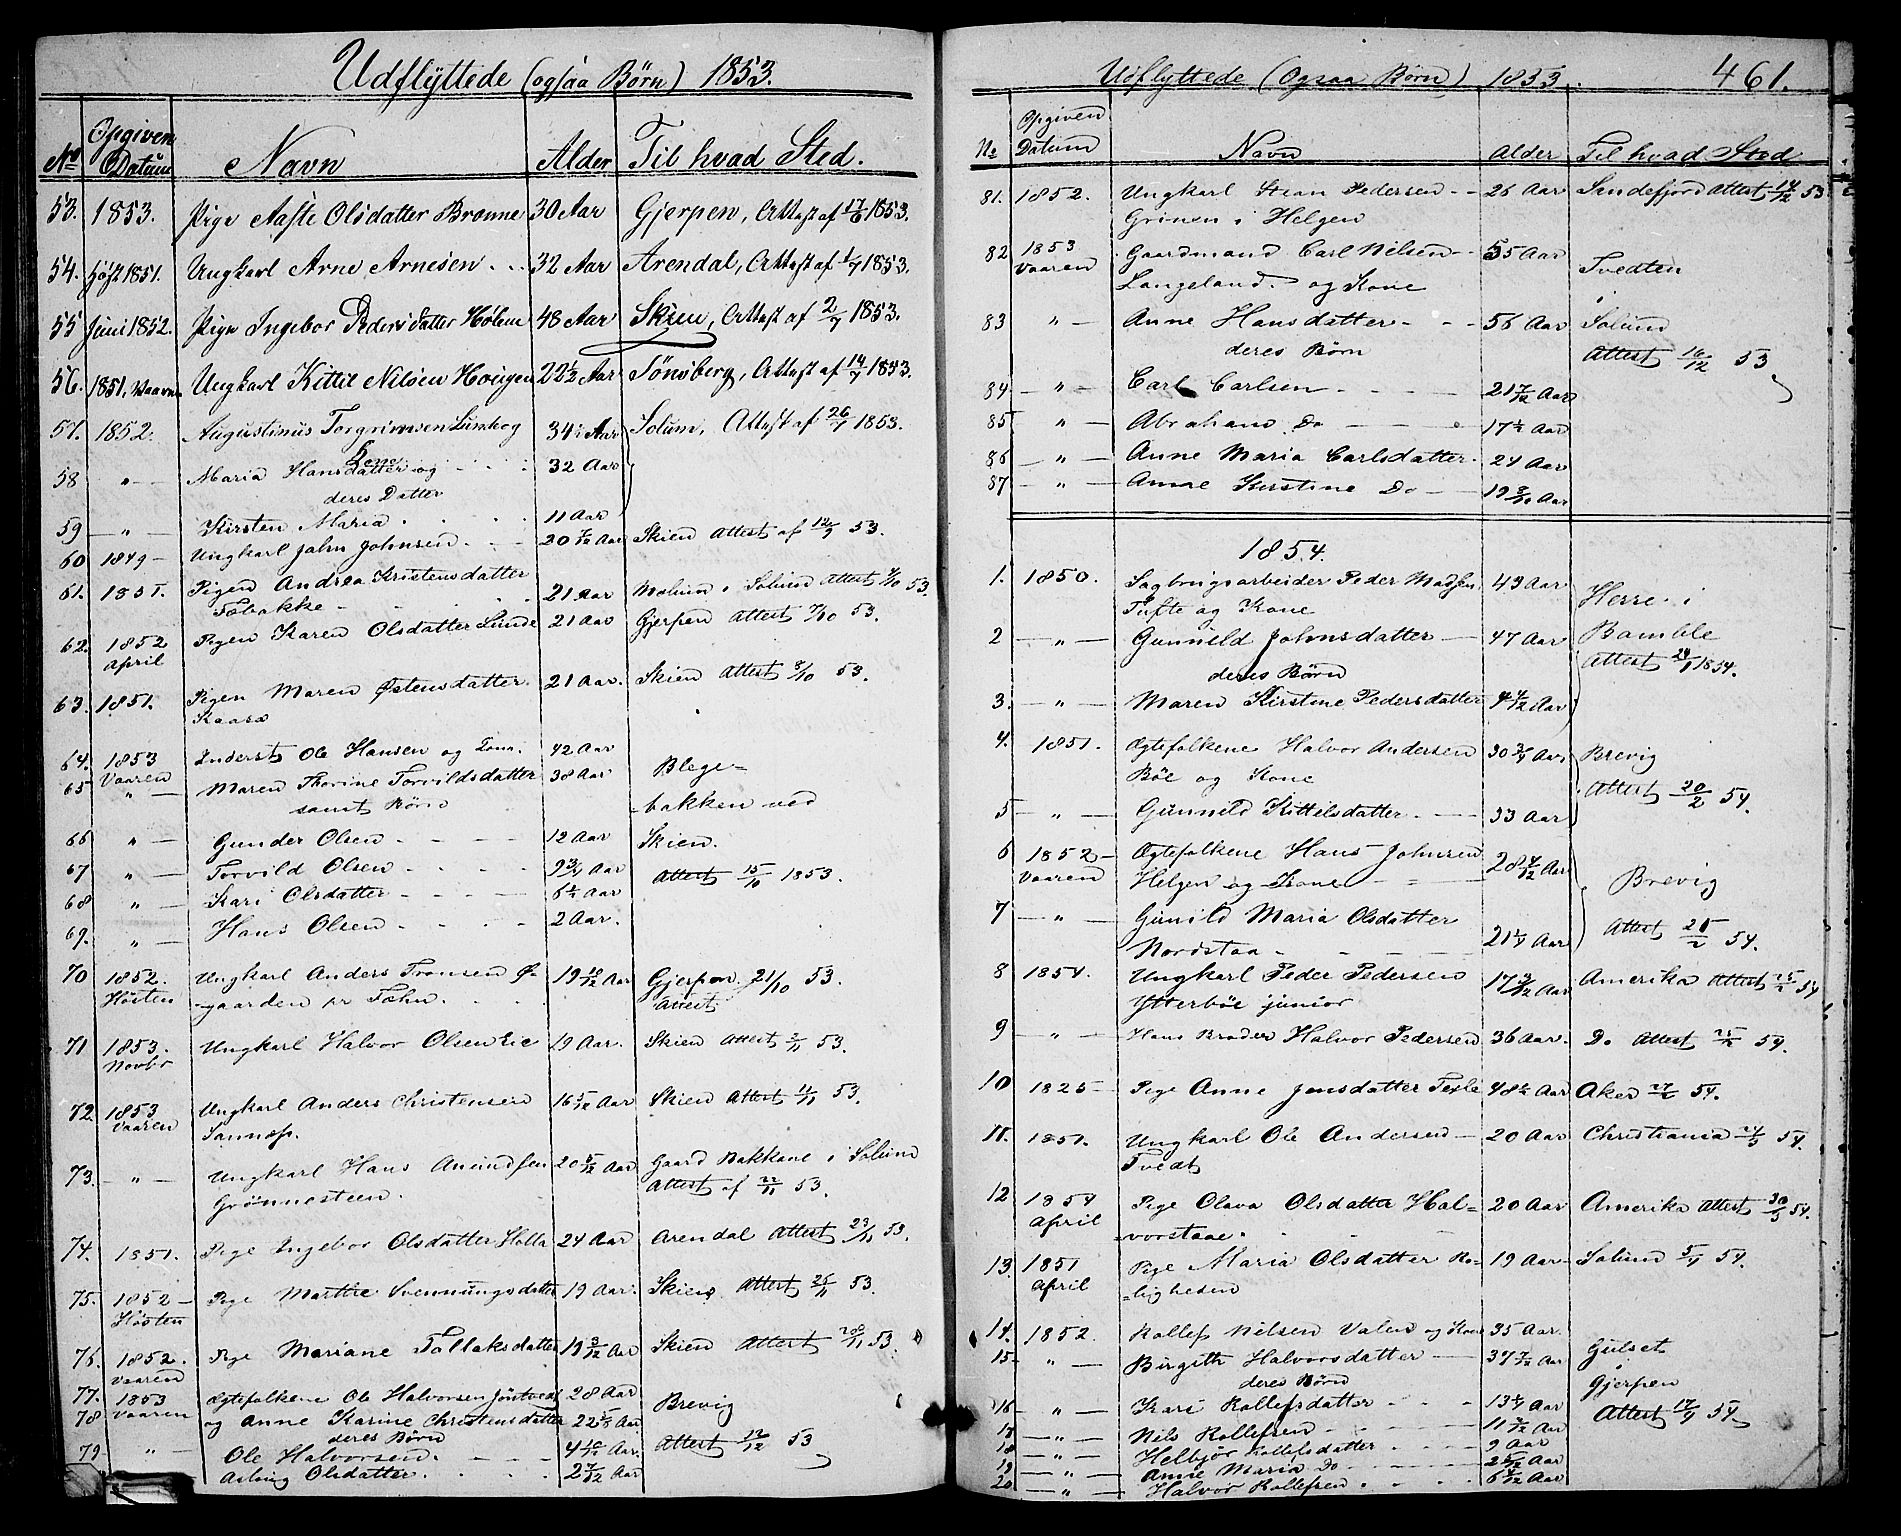 Udflyttede (ogsaa Børn) 1853.
No Opgiven Datum Navn Alder Til hvad Sted.
53. 1853. Pige Aaste Olsdatter Bronne 30 Aar Gjerpen, Attest af 17/6 1853.
54. Høst 1851. Ungkarl Arne Arnesen 32 Aar Arendal, Attest af 1/7 1853.
55 Juni 1852. Pige Ingebor Pedersdatter Holem 48 Aar Skien, Attest af 2/7 1853.
56. 1851. Vaaren Ungkarl Kittil Nilsen Hougen 22 1/2 Aar Tönsberg, Attest af 14/7 1853.
57. 1852. Augustinus Torgrimsen 34 1/2 Aar Solum, Attest af 26/7 1853.
Kone
58 " Maria Hansdatter og 32 Aar
deres Datter
59 " Kirsten Maria 11 Aar
60 1849 Ungkarl John Johnsen 20 7/12 Aar Skien Attest af 12/9 53.
61. 1851. Pigen Andrea Kristensdatter 21 Aar i Solum Attest 53.
Tobakke
62. 1852 April Pigen Karen Olsdatter Lunde 21 Aar Gjerpen Attest 7/10 53.
63. 1851. Pigen Maren Østensdatter 21 Aar. Skien Attest 8/10 53.
Kaasa
64. 1853 Vaaren Inderst Ole Hansen og Kone 42 Aar
65 " Maren Thorine Torvildsdatter 38 Aar Blege-
samt Børn bakken ved
66 " Gunder Olsen 12 Aar Skien.
67 " Torvild Olsen 9 3/4 Aar Attest 15/10 1853.
68 " Kari Olsdatter 6 1/2 Aar
69. " Hans Olsen 2 Aar.
70 1852. Høsten Ungkarl Anders Tronsen Ø- 19 10/12 Aar Gjerpen. 21/10 53.
-gaarden pr Fæhn. Attest
71 1853. Novbr Ungkarl Halvor Olsen Lie 19 Aar. Skien Attest 2/11 53.
72. 1853 Vaaren Ungkarl Anders Christensen 16 5/12 Aar Skien Attest 11/11 53.
Sannes.
73. " Ungkarl Hans Amundsen 20 5/12 Aar Gaard Bakkane i Solum
Grønnesteen. Attest af 22/11 53.
74. 1851. Pige Ingebor Olsdatter Holla 24 Aar Arendal Attest 23/11 53.
75. 1852 Høsten Pige Marthe Svennungsdatter 19 Aar. Skien Attest 25/11 53.
76. 1852. Vaaren Pige Mariane Tollaksdatter 19 3/12 Aar Skien Attest 28/11 53.
77. 1853 Ægtefolkene Ole Halvorsen Jontvedt 28 Aar Brevig
78 Vaaren og Anne Karine Christensdatter 22 5/8 Aar.
deres Børn
79 " Ole Halvorsen 4 10/12 Aar. Attest 12/12 53
Aslaug Olsdatter. 2 7/12 Aar
Udflyttede (Ogsaa Børn) 1853. 461.
No Opgiven Datum Navn Alder Til hvad Sted
81. 1852. Ungkarl Stean Pedersen 26 Aar Sandefjord Attest 14/12 53
Grinen i Helgen
82 1853 Vaaren Gaardmand Carl Nilsen 55 Aar Tvedten
Langeland og Kone i
83 " Anne Hansdatter 56 Aar Solum
deres Børn Attest 16/12 53
84 " Carl Carlsen 21 7/12 Aar
85 " Abraham Do 17 1/2 Aar
86 " Anne Maria Carlsdatter 24 Aar
87 " Anne Kirstine Do 19 Aar
1854.
1. 1850. Sagbrugsarbeider Peder Madsen 43 Aar Herre i
Tufte og Kone
2 " Gunnild Johnsdatter 47 Aar Bamble
deres Børn Attest 24/1 1854.
3. " Maren Kirstine Pedersdatter 4 4/12 Aar
4. 1851. Ægtefolkene Halvor Andersen 30 3/4 Aar Brevig
Böe og Kone Attest 20/2 54.
5 " Gunnild Kittelsdatter 33 Aar
6 1852 Vaaren Ægtefolkene Hans Johnsen 28 4/12 Aar Brevig
Helgen og Kone
7 " Gunild Maria Olsdatter Attest 25/2 54.
Nordstaa 21 1/4 Aar
8 1854. Ungkarl Peder Pedersen 17 3/12 Aar Amerika Attest 25/2 54
Ytterböe junior
9 " Hans Broder Halvor Pedersen 36 Aar. Do Attest 25/2 54.
10 1825 Pige Anne Jensdatter 48 1/2 Aar Aker 54.
11. 1851. Ungkarl Ole Andersen 20 Aar Christiania 54.
Tvedt
12 1854 April Pige Olava Olsdatter Hal= 20 Aar Amerika Attest 30/3 54.
=vorstaae.
13. 1851 April Pige Maria Olsdatter Ro- 19 Aar Solum 5/4 54.
=ligheden
14. 1852. Rollef Nilsen Valen og Kone 35 Aar. Gulset
15 " Birgith Halvorsdatter 37 7/12 Aar i
deres Børn Gjerpen
16 " Kari Rollefsdatter 13 1/4 Aar Attest 17/4 54
17 " Nils Rollefsen 11 3/12 Aar
18 " Helbjør Rollefsdatter 9 Aar
19 " Anne Maria Do 2 5/12 Aar
20 " Halvor Rollefsen 6 8/12 Aar